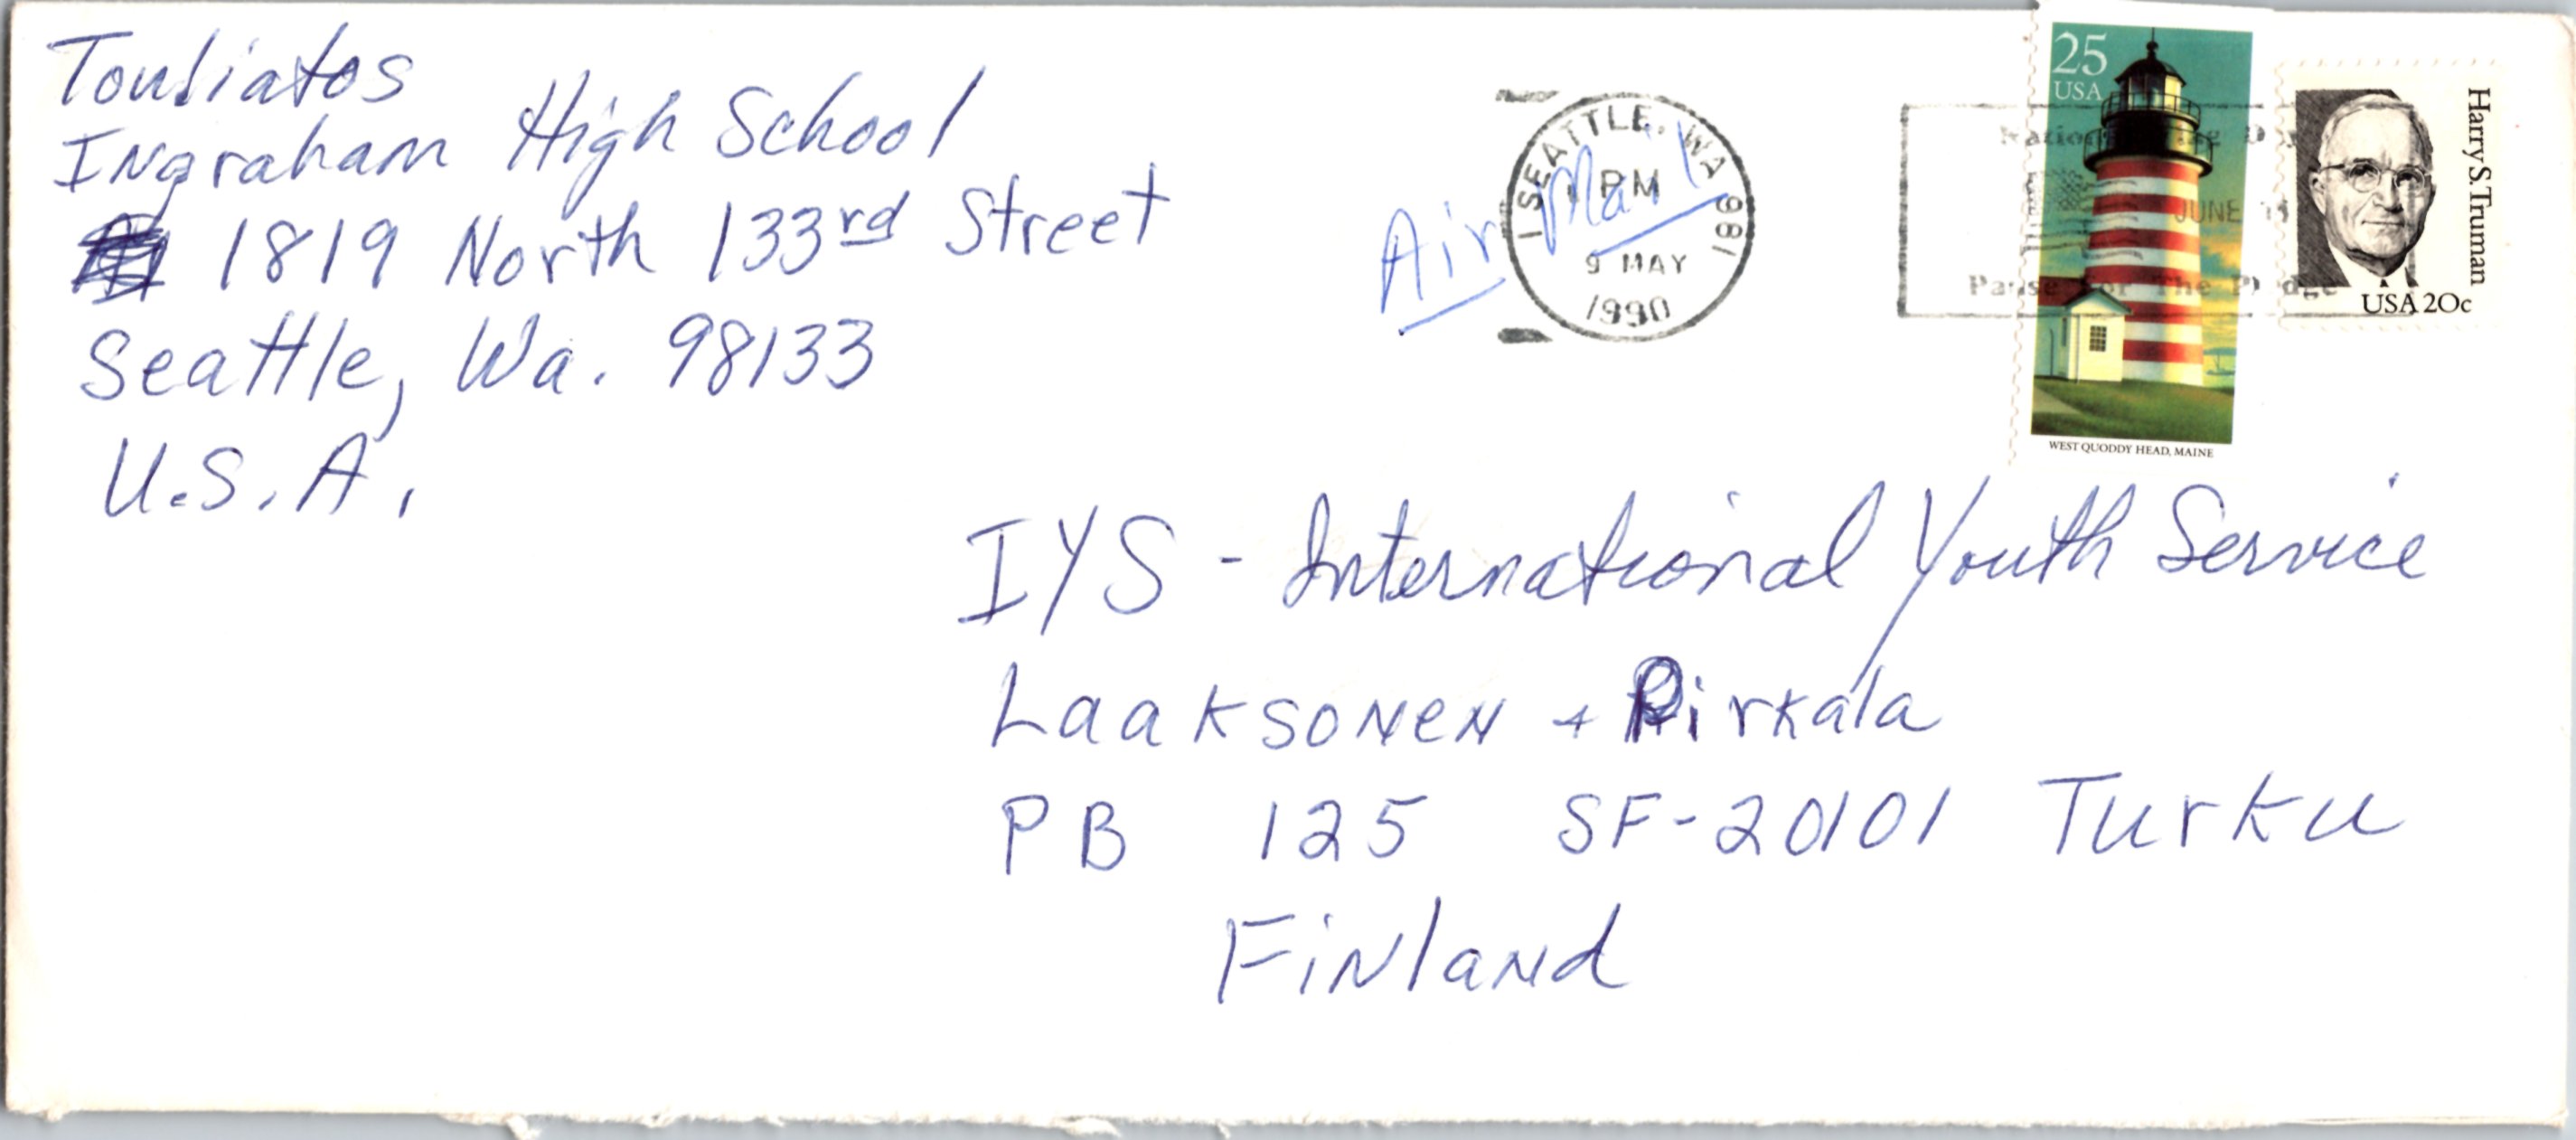 Touliatos
Ingraham High School
1819 North 133rd Street
Seattle, Wa. 98133
U.S.A.
Air Mail
SEATTLE, WA 981
PM
9 MAY
1990
JUNE 14
Pause For The Pledge
25
USA
WEST QUODDY HEAD, MAINE
Harry S. Truman
USA 20c
IYS - International Youth Service
Laaksonen + Pirkala
PB 125 SF-20101 Turku
Finland